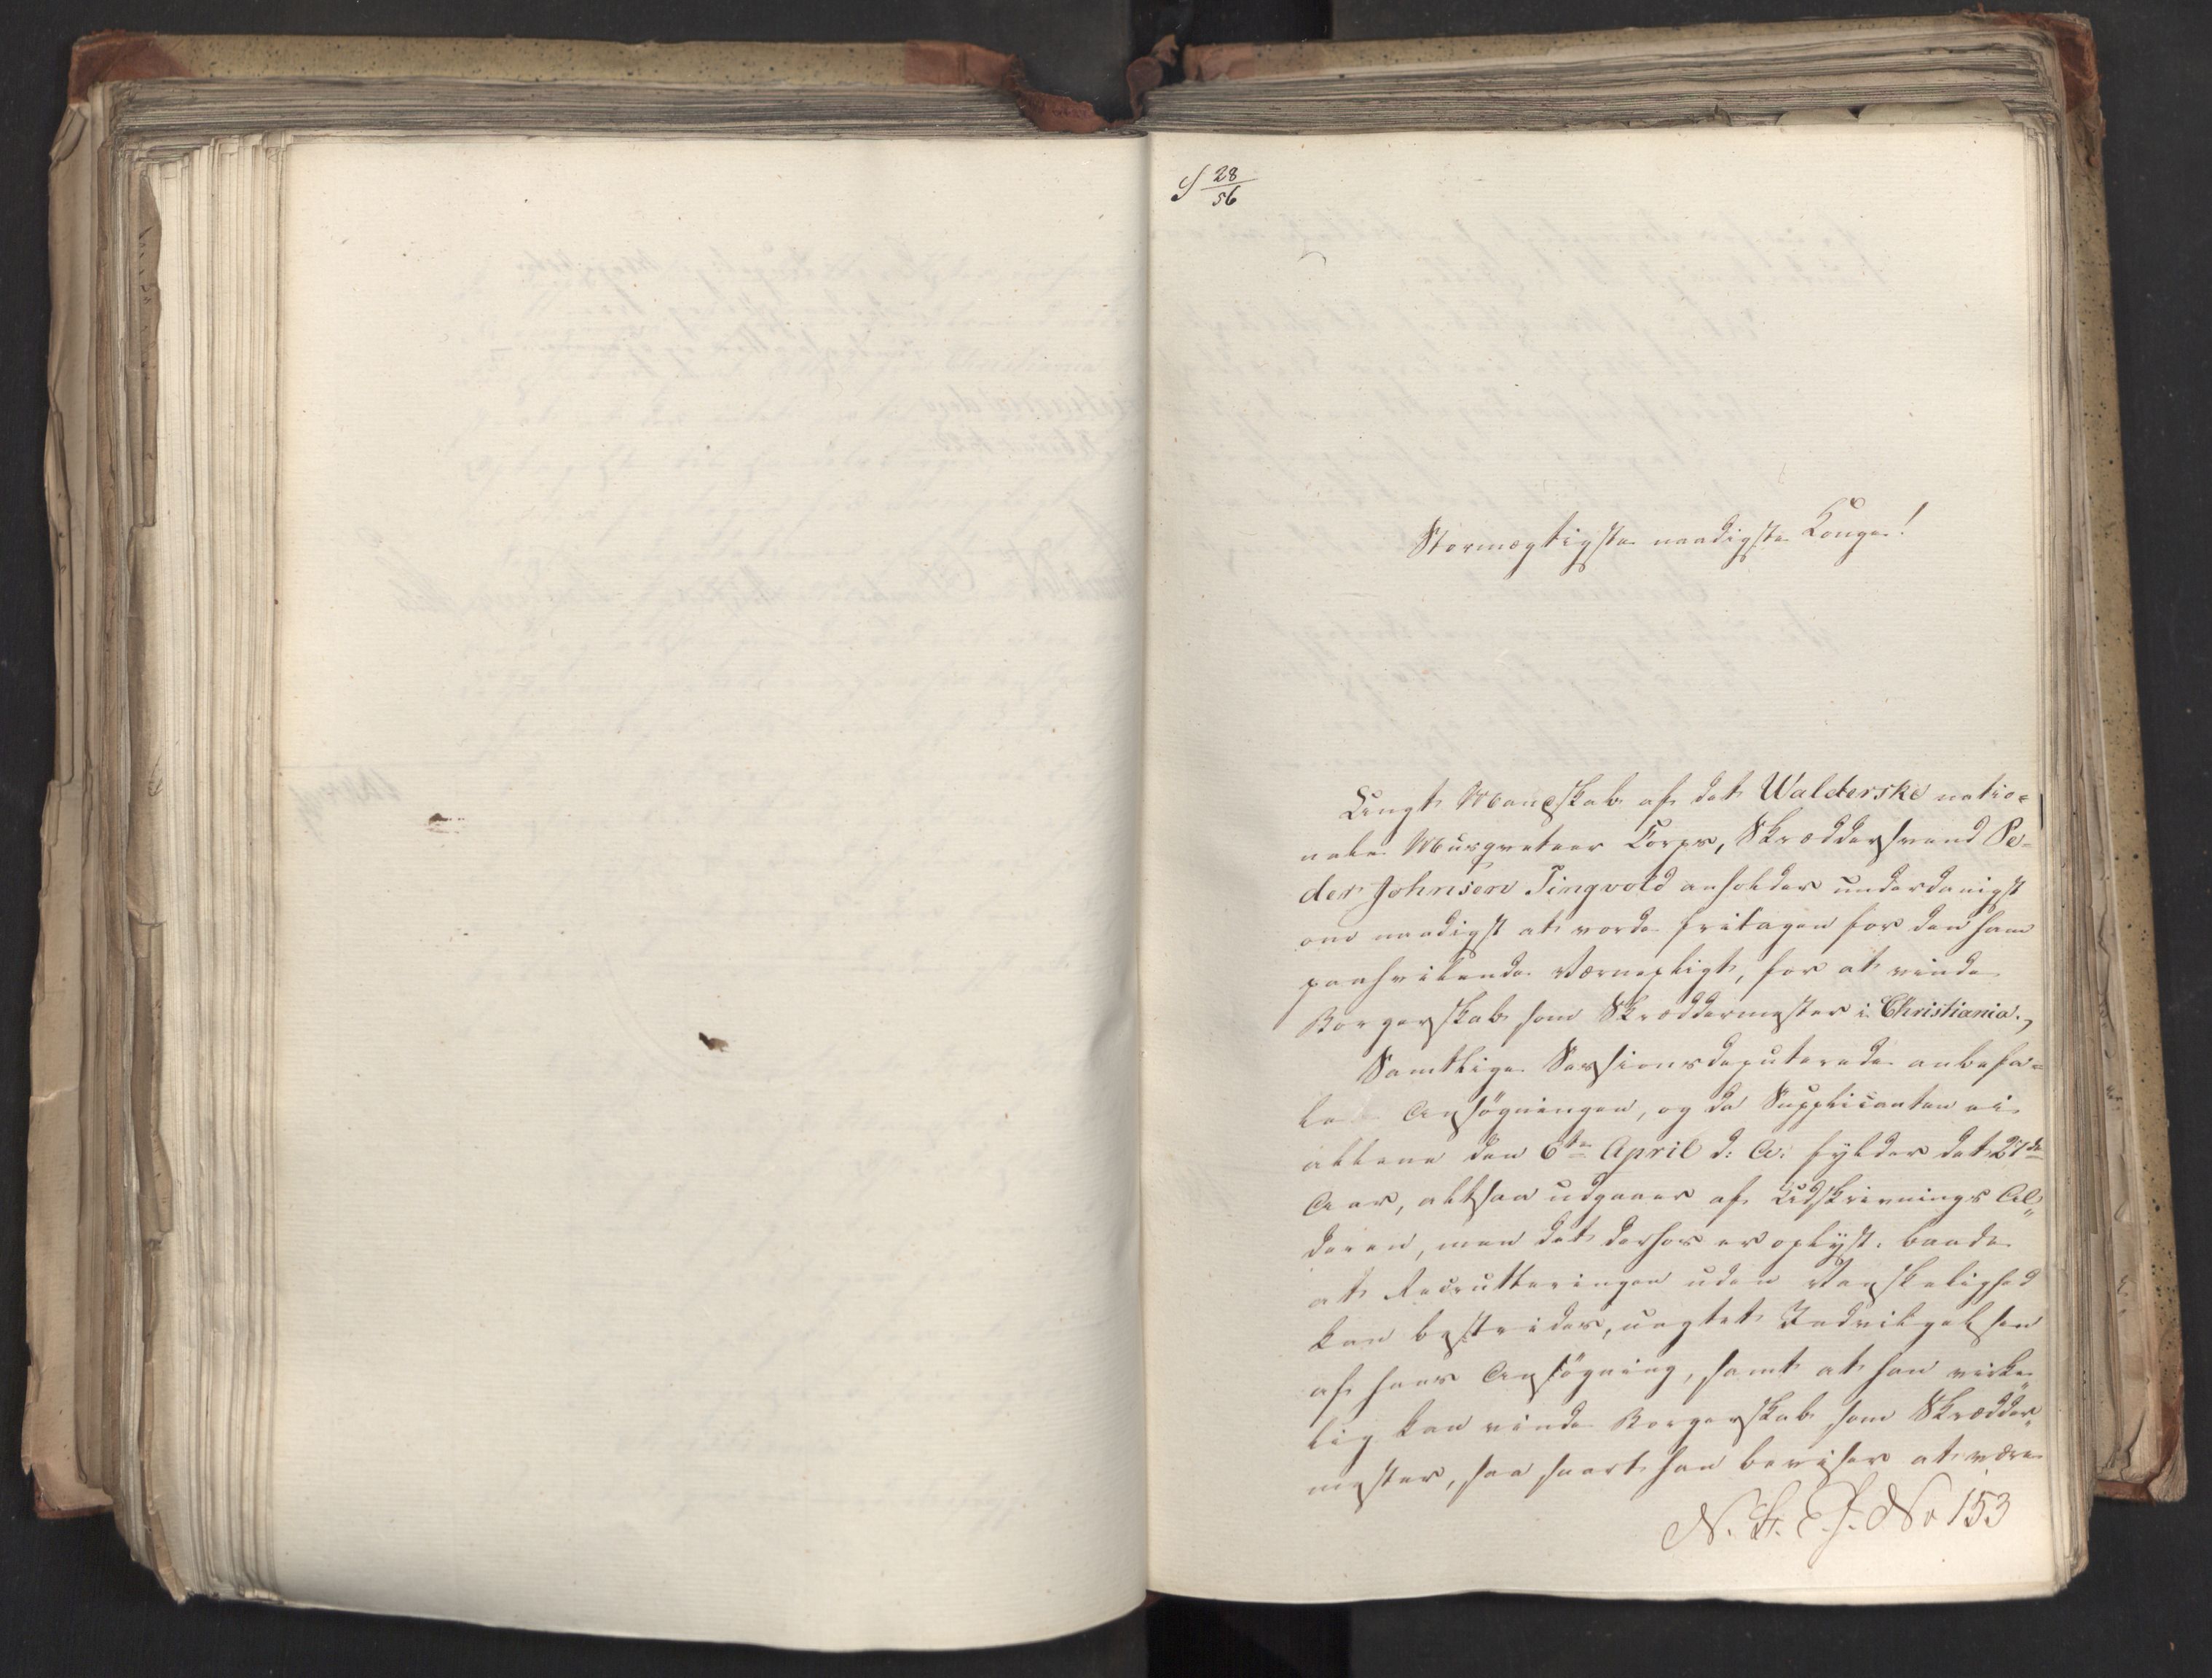 S 28/56
Stormægtigste naadigste Konge!
Ungt Mandskab af det Walderske natio=
nale Musqveteer Corps, Skræddersvend Pe-
der Johnsen Tingvold anholder underdanigst
om naadigst at vorde fritagen for den ham
paahvilende Værnepligt, for at vinde
Borgerskab som Skræddermester i Christiania.
Samtlige Sessionsdeputerede anbefa=
le Ansøgningen, og da Supplicanten ei
allene den 6te April d: A: fylder det 27de
Aar, altsaa udgaaer af Udskrivnings Al„
deren, men det derhos er oplyst baade
at Recrutteringen uden Vanskelighed
kan bestrides, uagtet Indvilgelsen
af hans Ansøgning, samt at han virke„
lig kan vinde Borgerskab som Skrædder„
mester, saa snart han beviser at være
No 153